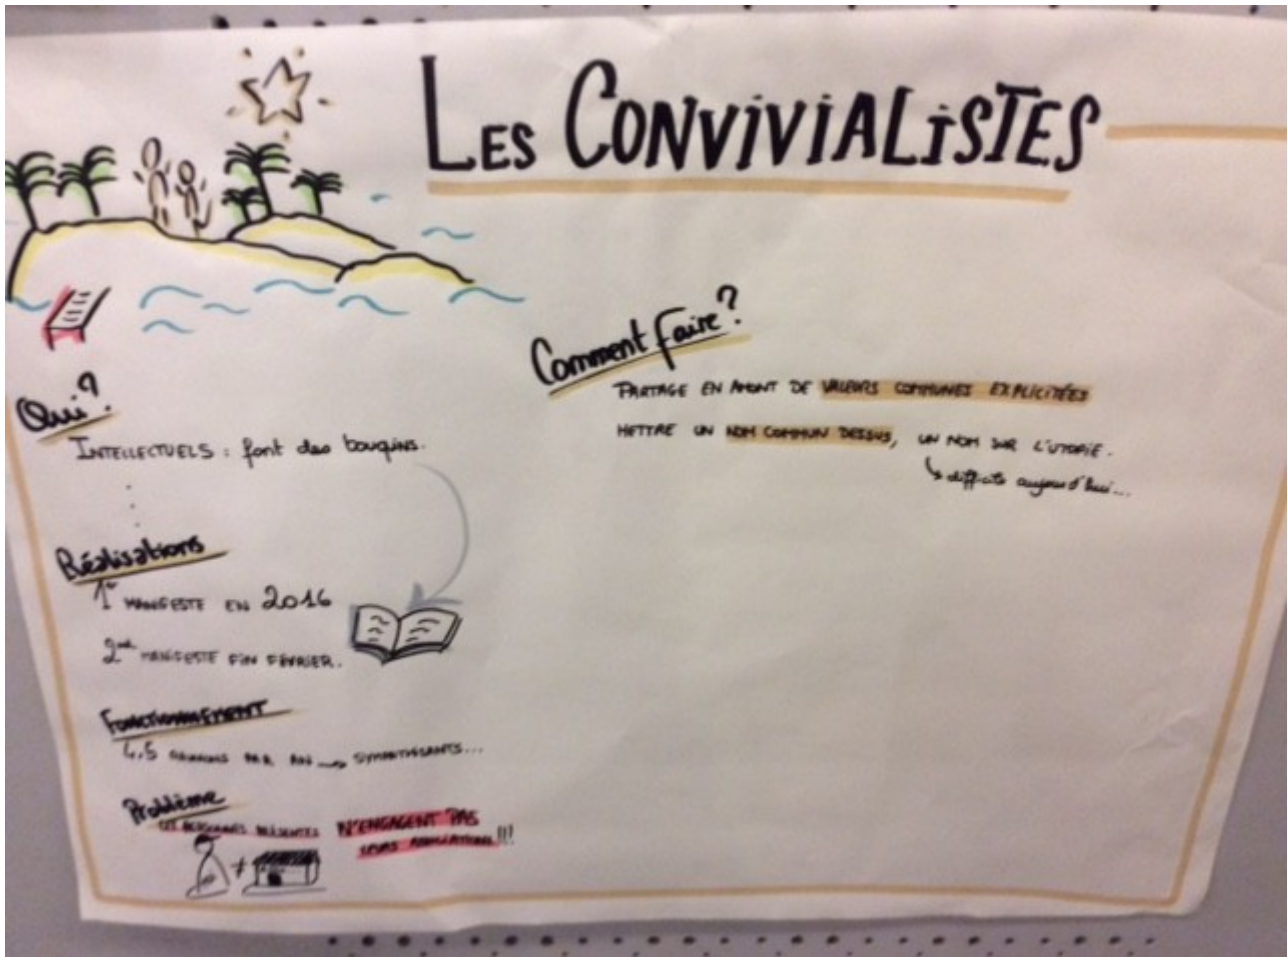 LES CONVIVIALiSTES
Qui?
INTELLECTUELS : font des bouquins.
Réalisations
1er MANIFESTE EN 2016
2nd MANIFESTE FIN FÉVRIER.
FONCTIONNEMENT
4,5 RÉUNIONS PAR AN → SYMPATHISANTS...
Problème
LES PERSONNES PRÉSENTES N'ENGAGENT PAS
LEURS ASSOCIATIONS !!!
≠
Comment faire?
PARTAGE EN AMONT DE VALEURS COMMUNES EXPLICITÉES
METTRE UN NOM COMMUN DESSUS, UN NOM SUR L'UTOPIE.
↳ difficile aujourd'hui...